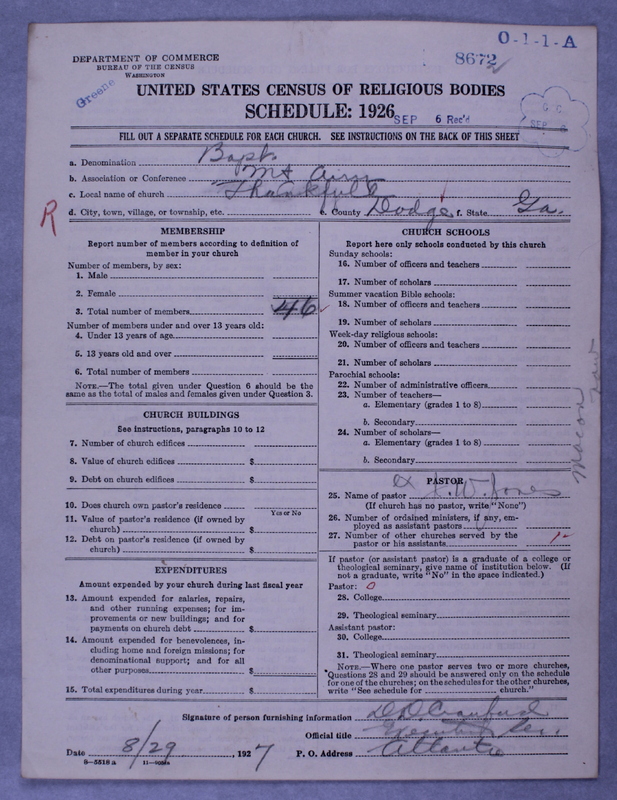 O-1-1-A
8672
DEPARTMENT OF COMMERCE
BUREAU OF THE CENSUS
WASHINGTON
Greene
UNITED STATES CENSUS OF RELIGIOUS BODIES
SCHEDULE: 1926
SEP 6 Rec'd
G. C.
SEP 6
FILL OUT A SEPARATE SCHEDULE FOR EACH CHURCH. SEE INSTRUCTIONS ON THE BACK OF THIS SHEET
a. Denomination Bapt.
b. Association or Conference Mt
c. Local name of church Thankfull
R
d. City, town, village, or township, etc. e. County Dodge f. State Ga.
MEMBERSHIP
Report number of members according to definition of
member in your church
Number of members, by sex:
1. Male
2. Female
3. Total number of members 46
Number of members under and over 13 years old:
4. Under 13 years of age
5. 13 years old and over
6. Total number of members
NOTE.—The total given under Question 6 should be the
same as the total of males and females given under Question 3.
CHURCH BUILDINGS
See instructions, paragraphs 10 to 12
7. Number of church edifices
8. Value of church edifices $
9. Debt on church edifices $
10. Does church own pastor's residence
Yes or No
11. Value of pastor's residence (if owned by
church) $
12. Debt on pastor's residence (if owned by
church) $
EXPENDITURES
Amount expended by your church during last fiscal year
13. Amount expended for salaries, repairs,
and other running expenses; for im-
provements or new buildings; and for
payments on church debt $
14. Amount expended for benevolences, in-
cluding home and foreign missions; for
denominational support; and for all
other purposes $
15. Total expenditures during year $
CHURCH SCHOOLS
Report here only schools conducted by this church
Sunday schools:
16. Number of officers and teachers
17. Number of scholars
Summer vacation Bible schools:
18. Number of officers and teachers
19. Number of scholars
Week-day religious schools:
20. Number of officers and teachers
21. Number of scholars
Parochial schools:
22. Number of administrative officers
23. Number of teachers—
a. Elementary (grades 1 to 8)
b. Secondary
24. Number of scholars—
a. Elementary (grades 1 to 8)
b. Secondary
Macon
PASTOR
25. Name of pastor W. Jones
(If church has no pastor, write "None")
26. Number of ordained ministers, if any, em-
ployed as assistant pastors
27. Number of other churches served by the
pastor or his assistants
If pastor (or assistant pastor) is a graduate of a college or
theological seminary, give name of institution below. (If
not a graduate, write "No" in the space indicated.)
Pastor: 0
28. College
29. Theological seminary
Assistant pastor:
30. College
31. Theological seminary
NOTE.—Where one pastor serves two or more churches,
Questions 28 and 29 should be answered only on the schedule
for one of the churches; on the schedules for the other churches,
write "See schedule for church."
Signature of person furnishing information D.D. Crawford
Official title Executive Sec.
Date 8/29, 1927 P. O. Address Atlanta
8—5518 a